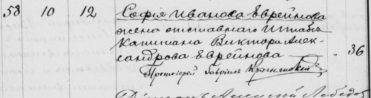 58 10 12 Софія Иванова Евреинова
жена отставнаго Штабсъ
Капитана Виктора Алек-
сандрова Евреинова 36
Протоіерей Гавріилъ